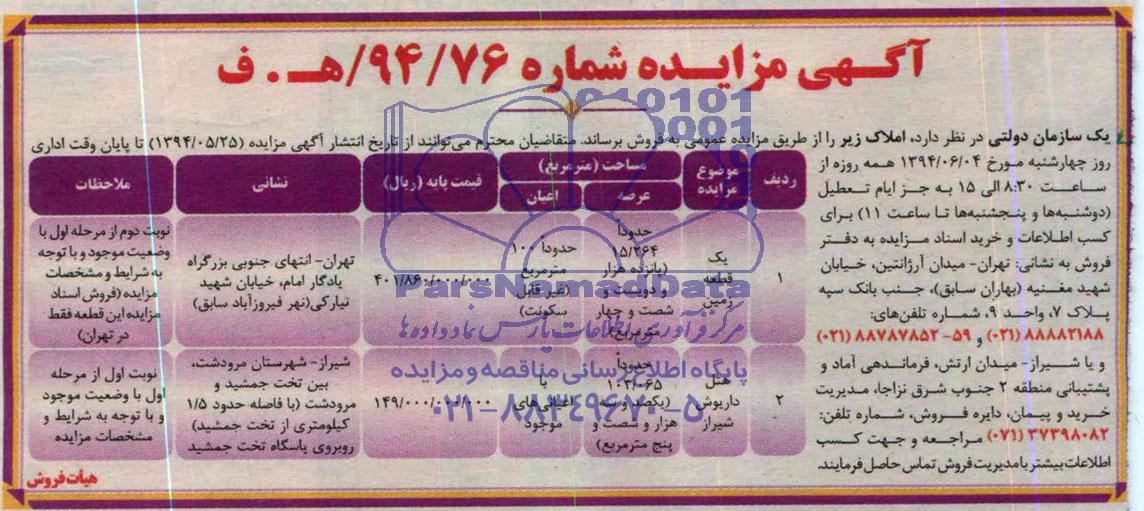 آگهی مزایده شماره ۹۴/۷۶/هـ . ف
یک سازمان دولتی در نظر دارد، املاک زیر را از طریق مزایده عمومی به فروش برساند. متقاضیان محترم می‌توانند از تاریخ انتشار آگهی مزایده (۱۳۹۴/۰۵/۲۵) تا پایان وقت اداری
روز چهارشنبه مورخ ۱۳۹۴/۰۶/۰۴ همه روزه از
ساعت ۸:۳۰ الی ۱۵ به جز ایام تعطیل
(دوشنبه‌ها و پنجشنبه‌ها تا ساعت ۱۱) برای
کسب اطلاعات و خرید اسناد مزایده به دفتر
فروش به نشانی: تهران- میدان آرژانتین، خیابان
شهید مغنیه (بهاران سابق)، جنب بانک سپه
پلاک ۷، واحد ۹، شماره تلفن‌های:
۸۸۸۸۲۱۸۸ (۰۲۱) و ۵۹-۸۸۷۸۷۸۵۲ (۰۲۱)
و یا شیراز- میدان ارتش، فرماندهی آماد و
پشتیبانی منطقه ۲ جنوب شرق نزاجا، مدیریت
خرید و پیمان، دایره فروش، شماره تلفن:
۳۷۳۹۸۰۸۲ (۰۷۱) مراجعه و جهت کسب
اطلاعات بیشتر با مدیریت فروش تماس حاصل فرمایند.
ردیف
موضوع
مزایده
مساحت (مترمربع)
عرصه
اعیان
قیمت پایه (ریال)
نشانی
ملاحظات
۱
یک
قطعه
زمین
حدوداً
۱۵/۲۶۴
(پانزده هزار
و دویست و
شصت و چهار
مترمربع)
حدودا ۱۰۰
مترمربع
(غیر قابل
سکونت)
۴۰۱/۸۶۰/۰۰۰/۰۰۰
تهران- انتهای جنوبی بزرگراه
یادگار امام، خیابان شهید
تیارکی(نهر فیروزآباد سابق)
نوبت دوم از مرحله اول با
وضعیت موجود و با توجه
به شرایط و مشخصات
مزایده (فروش اسناد
مزایده این قطعه فقط
در تهران)
۲
هتل
داریوش
شیراز
حدوداً
۱۰۳/۰۶۵
(یکصد و سه
هزار و شصت و
پنج مترمربع)
با
اعیانی‌های
موجود
۱۴۹/۰۰۰/۰۰۰/۰۰۰
شیراز- شهرستان مرودشت،
بین تخت جمشید و
مرودشت (با فاصله حدود ۱/۵
کیلومتری از تخت جمشید)
روبروی پاسگاه تخت جمشید
نوبت اول از مرحله
اول با وضعیت موجود
و با توجه به شرایط و
مشخصات مزایده
هیأت فروش
ParsNamadData
مرکز فرآوری اطلاعات پارس نماد داده‌ها
پایگاه اطلاع رسانی مناقصه و مزایده
۰۲۱-۸۸۳۴۹۶۷۰-۵